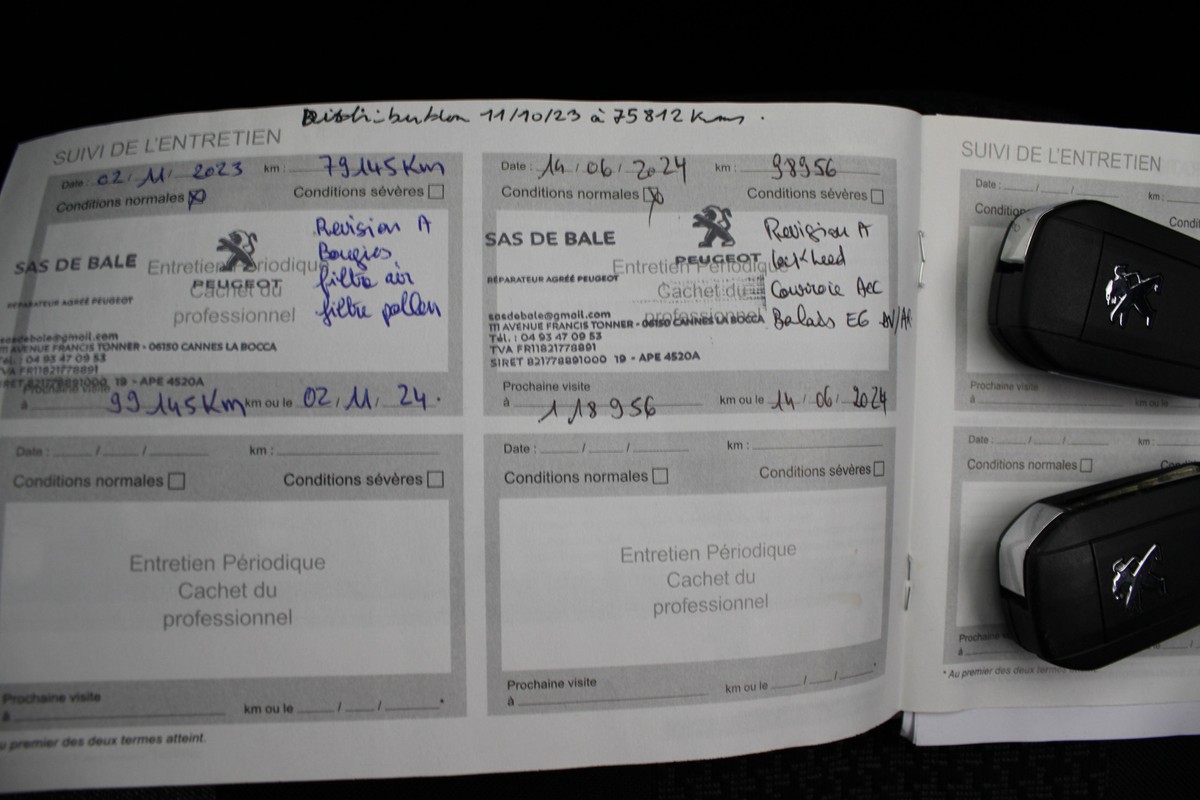 Distribution 11/10/23 à 75812 Kms.
SUIVI DE L'ENTRETIEN
Date : 02 / 11 / 2023 km : 79145 Km
Conditions normales Conditions sévères
SAS DE BALE
RÉPARATEUR AGRÉÉ PEUGEOT
PEUGEOT
Entretien Périodique
Cachet du
professionnel
Revision A
Bougies
filtre air
filtre pollen
sasdebale@gmail.com
111 AVENUE FRANCIS TONNER - 06150 CANNES LA BOCCA
Tél. : 04 93 47 09 53
TVA FR11821778891
SIRET 821778891000 19 - APE 4520A
Prochaine visite
à 99145 Km km ou le 02 / 11 / 24 .
Date : 14 / 06 / 2024 km : 98956
Conditions normales Conditions sévères
SAS DE BALE
RÉPARATEUR AGRÉÉ PEUGEOT
PEUGEOT
Entretien Périodique
Cachet du
professionnel
Revision A
lockheed
Courroie Acc
Balais EG AV/AR
sasdebale@gmail.com
111 AVENUE FRANCIS TONNER - 06150 CANNES LA BOCCA
Tél. : 04 93 47 09 53
TVA FR11821778891
SIRET 821778891000 19 - APE 4520A
Prochaine visite
à 118956 km ou le 14 / 06 / 2024
Date : / / km :
Conditions normales Conditions sévères
Entretien Périodique
Cachet du
professionnel
Prochaine visite
à km ou le / / *
au premier des deux termes atteint.
Date : / / km :
Conditions normales Conditions sévères
Entretien Périodique
Cachet du
professionnel
Prochaine visite
à km ou le / / *
SUIVI DE L'ENTRETIEN
Date : / / km :
Prochaine visite
à km ou le
Date : / / km :
Conditions normales
Prochaine
à
* Au premier des deux termes